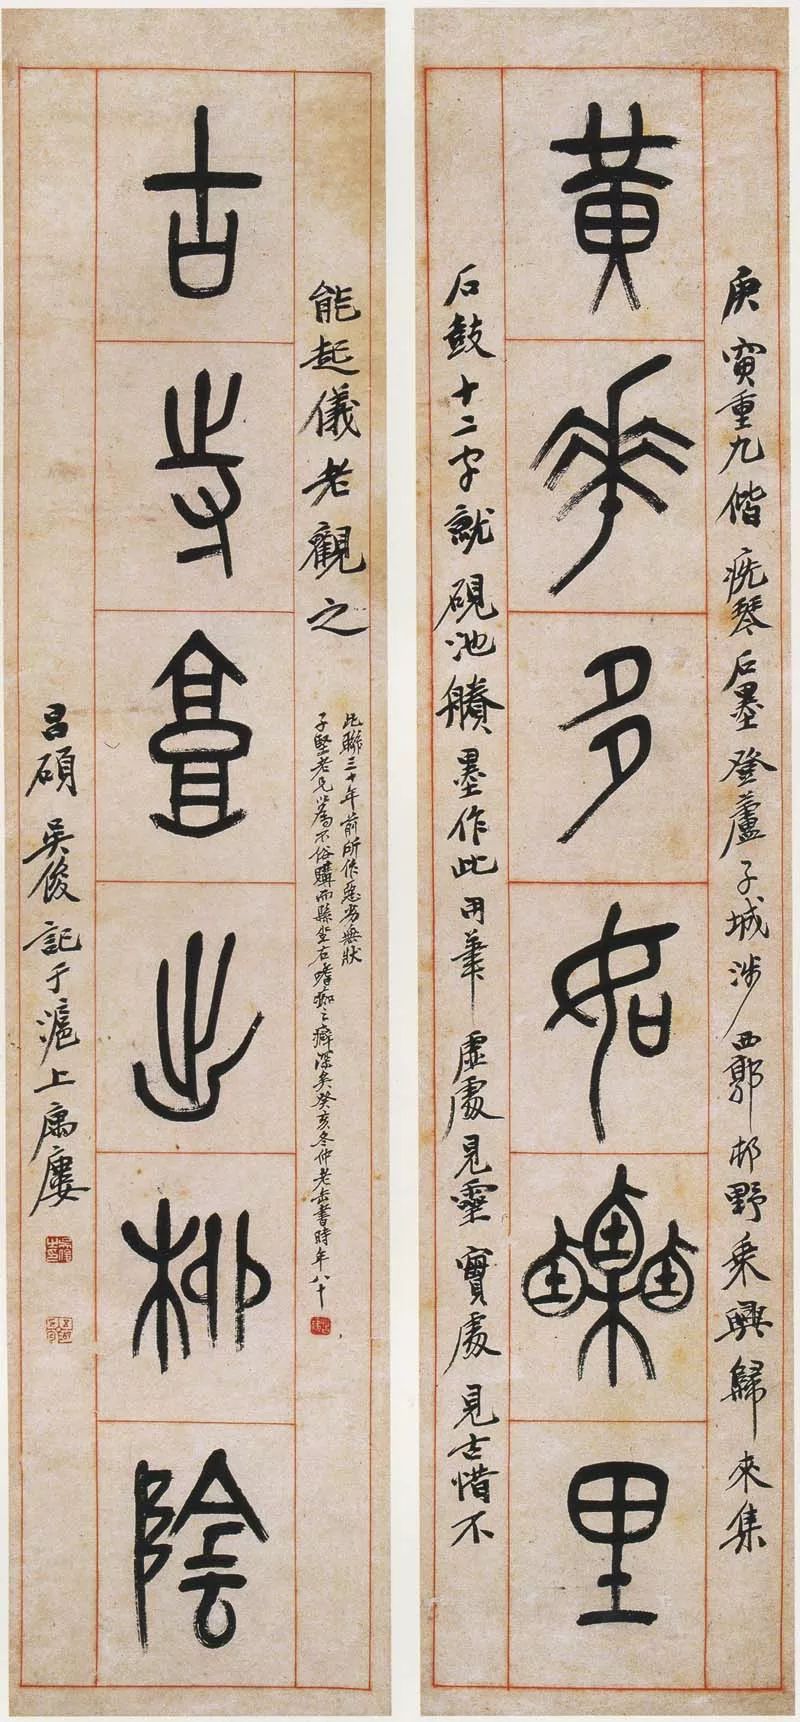 庚寅重九偕疣琴石墨登蘆子城涉西郭邨野乘興歸來集
黃華多如栗里
石鼓十二字就硯池賸墨作此用筆虛處見靈實處見古惜不
能起儀老觀之
此聯三十年前所作惡劣無狀
子堅老兄以為不俗購而縣坐右嗜痂之癖深矣癸亥冬仲老缶書時年八十
古寺會出柳陰
昌碩吳俊記于滬上寓廔